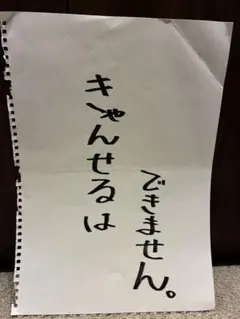 きゃんせるは
できません。